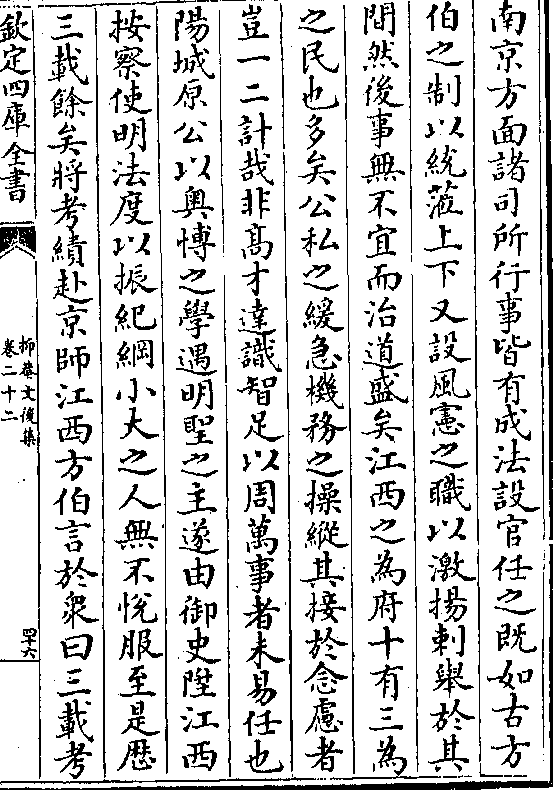 南京方面諸司所行事皆有成法設官任之既如古方
伯之制以統蒞上下又設風憲之職以激揚刺舉於其
間然後事無不宜而治道盛矣江西之為府十有三為
之民也多矣公私之緩急機務之操縱其接於念慮者
豈一二計哉非高才達識智足以周萬事者未易任也
陽城原公以奧愽之學遇明聖之主遂由御史陞江西
按察使明法度以振紀綱小大之人無不悅服至是歴
三載餘矣將考績赴京師江西方伯言於衆曰三載考
欽定四庫全書
抑菴文後集
卷二十二
四十六